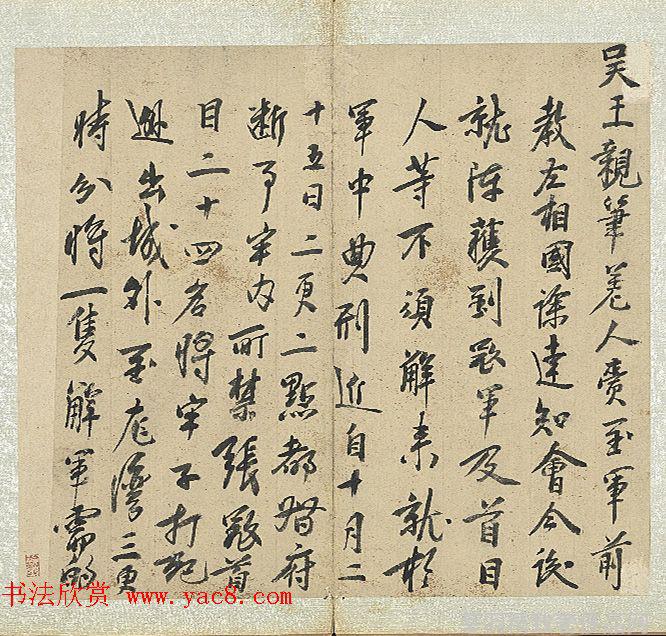 吴王親筆差人賫至軍前
教左相國徐達知會今後
就陣獲到寇軍及首目
人等不須解来就於
軍中典刑近自十月二
十五日二更二點都督府
断事牢内所禁張寇首
目二十四名将牢子打死
越出城外至龙灣三更
時分将一隻解軍需船
书法欣赏 www.yac8.com